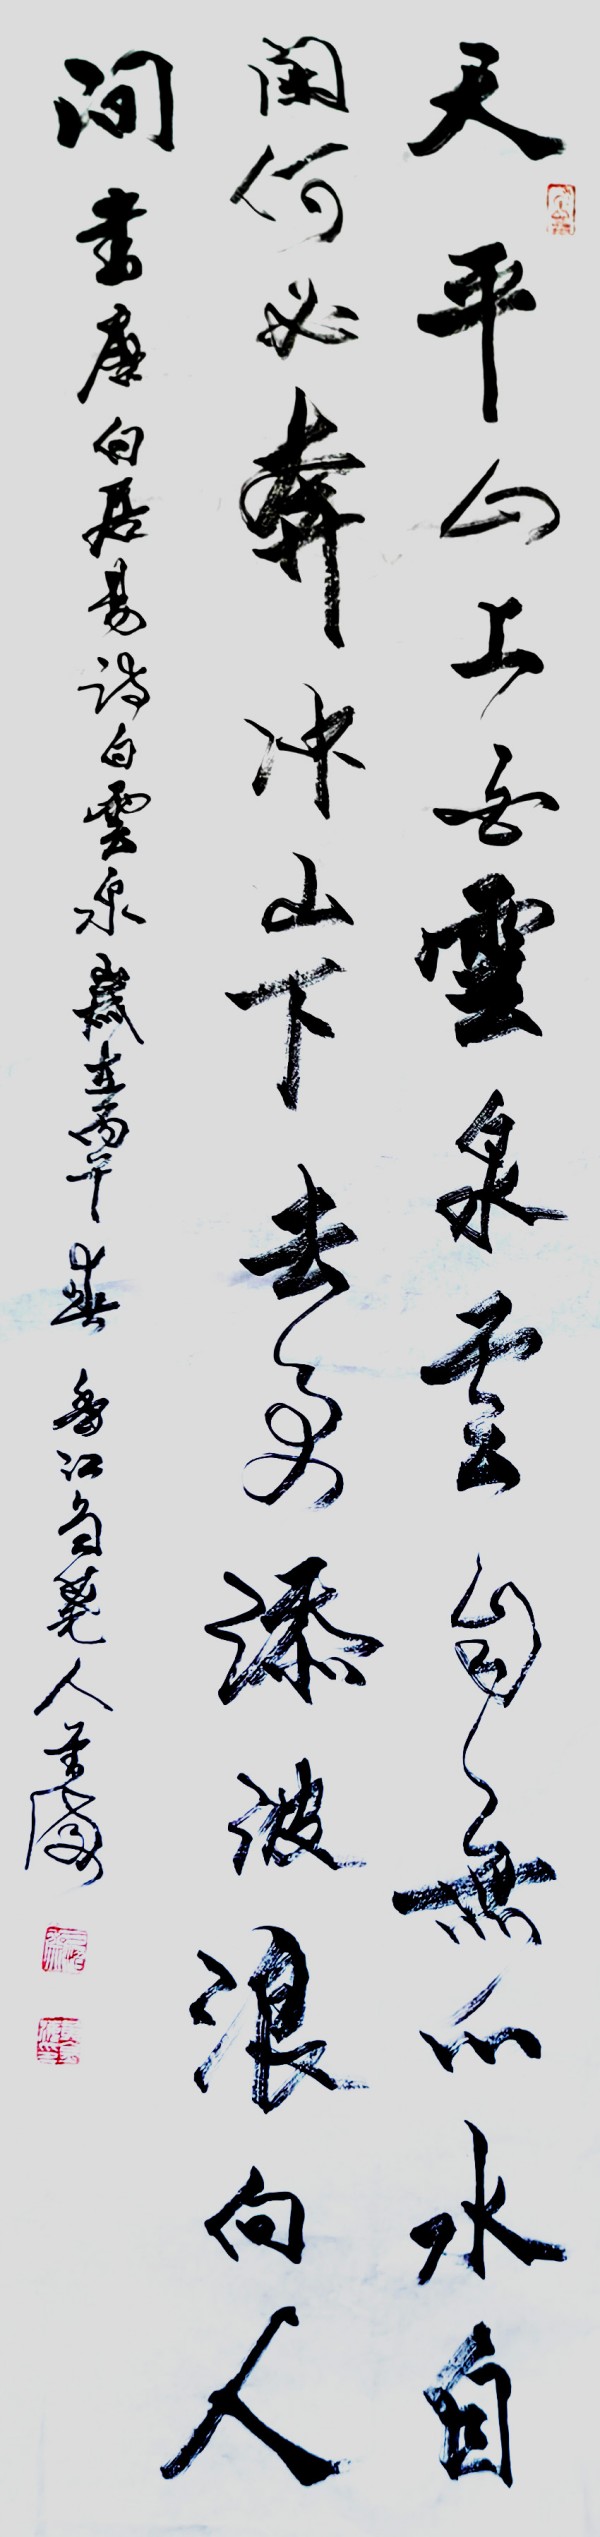 天平山上白雲泉雲自無心水自
閑何必奔冲山下去更添波浪向人
間書唐白居易詩白雲泉歲在丙午春香江芻蕘人